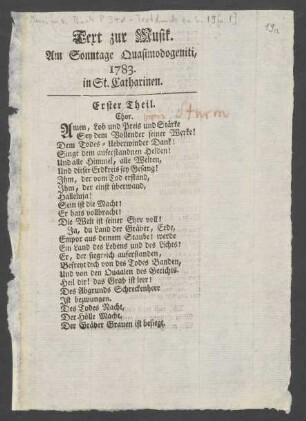 19a
Text zur Musik.
Am Sonntage Quasimodogeniti,
1783.
in St. Catharinen.
Erster Theil.
von Sturm
Chor.
Amen, Lob und Preis und Stärke
Sey dem Vollender seiner Werke!
Dem Todes-Ueberwinder Dank!
Singt dem auferstandnen Helden!
Und alle Himmel, alle Welten,
Und dieser Erdkreis sey Gesang!
Ihm, der vom Tod erstand,
Ihm, der einst überwand,
Halleluja!
Sein ist die Macht!
Er hats vollbracht!
Die Welt ist seiner Ehre voll!
Ja, du Land der Gräber, Erde,
Empor aus deinem Staube! werde
Ein Land des Lebens und des Lichts!
Er, der siegreich auferstanden,
Befreyt dich von des Todes Banden,
Und von den Quaalen des Gerichts.
Heil dir! das Grab ist leer!
Des Abgrunds Schreckenheer
Ist bezwungen.
Des Todes Nacht,
Der Hölle Macht,
Der Gräber Grauen ist besiegt.